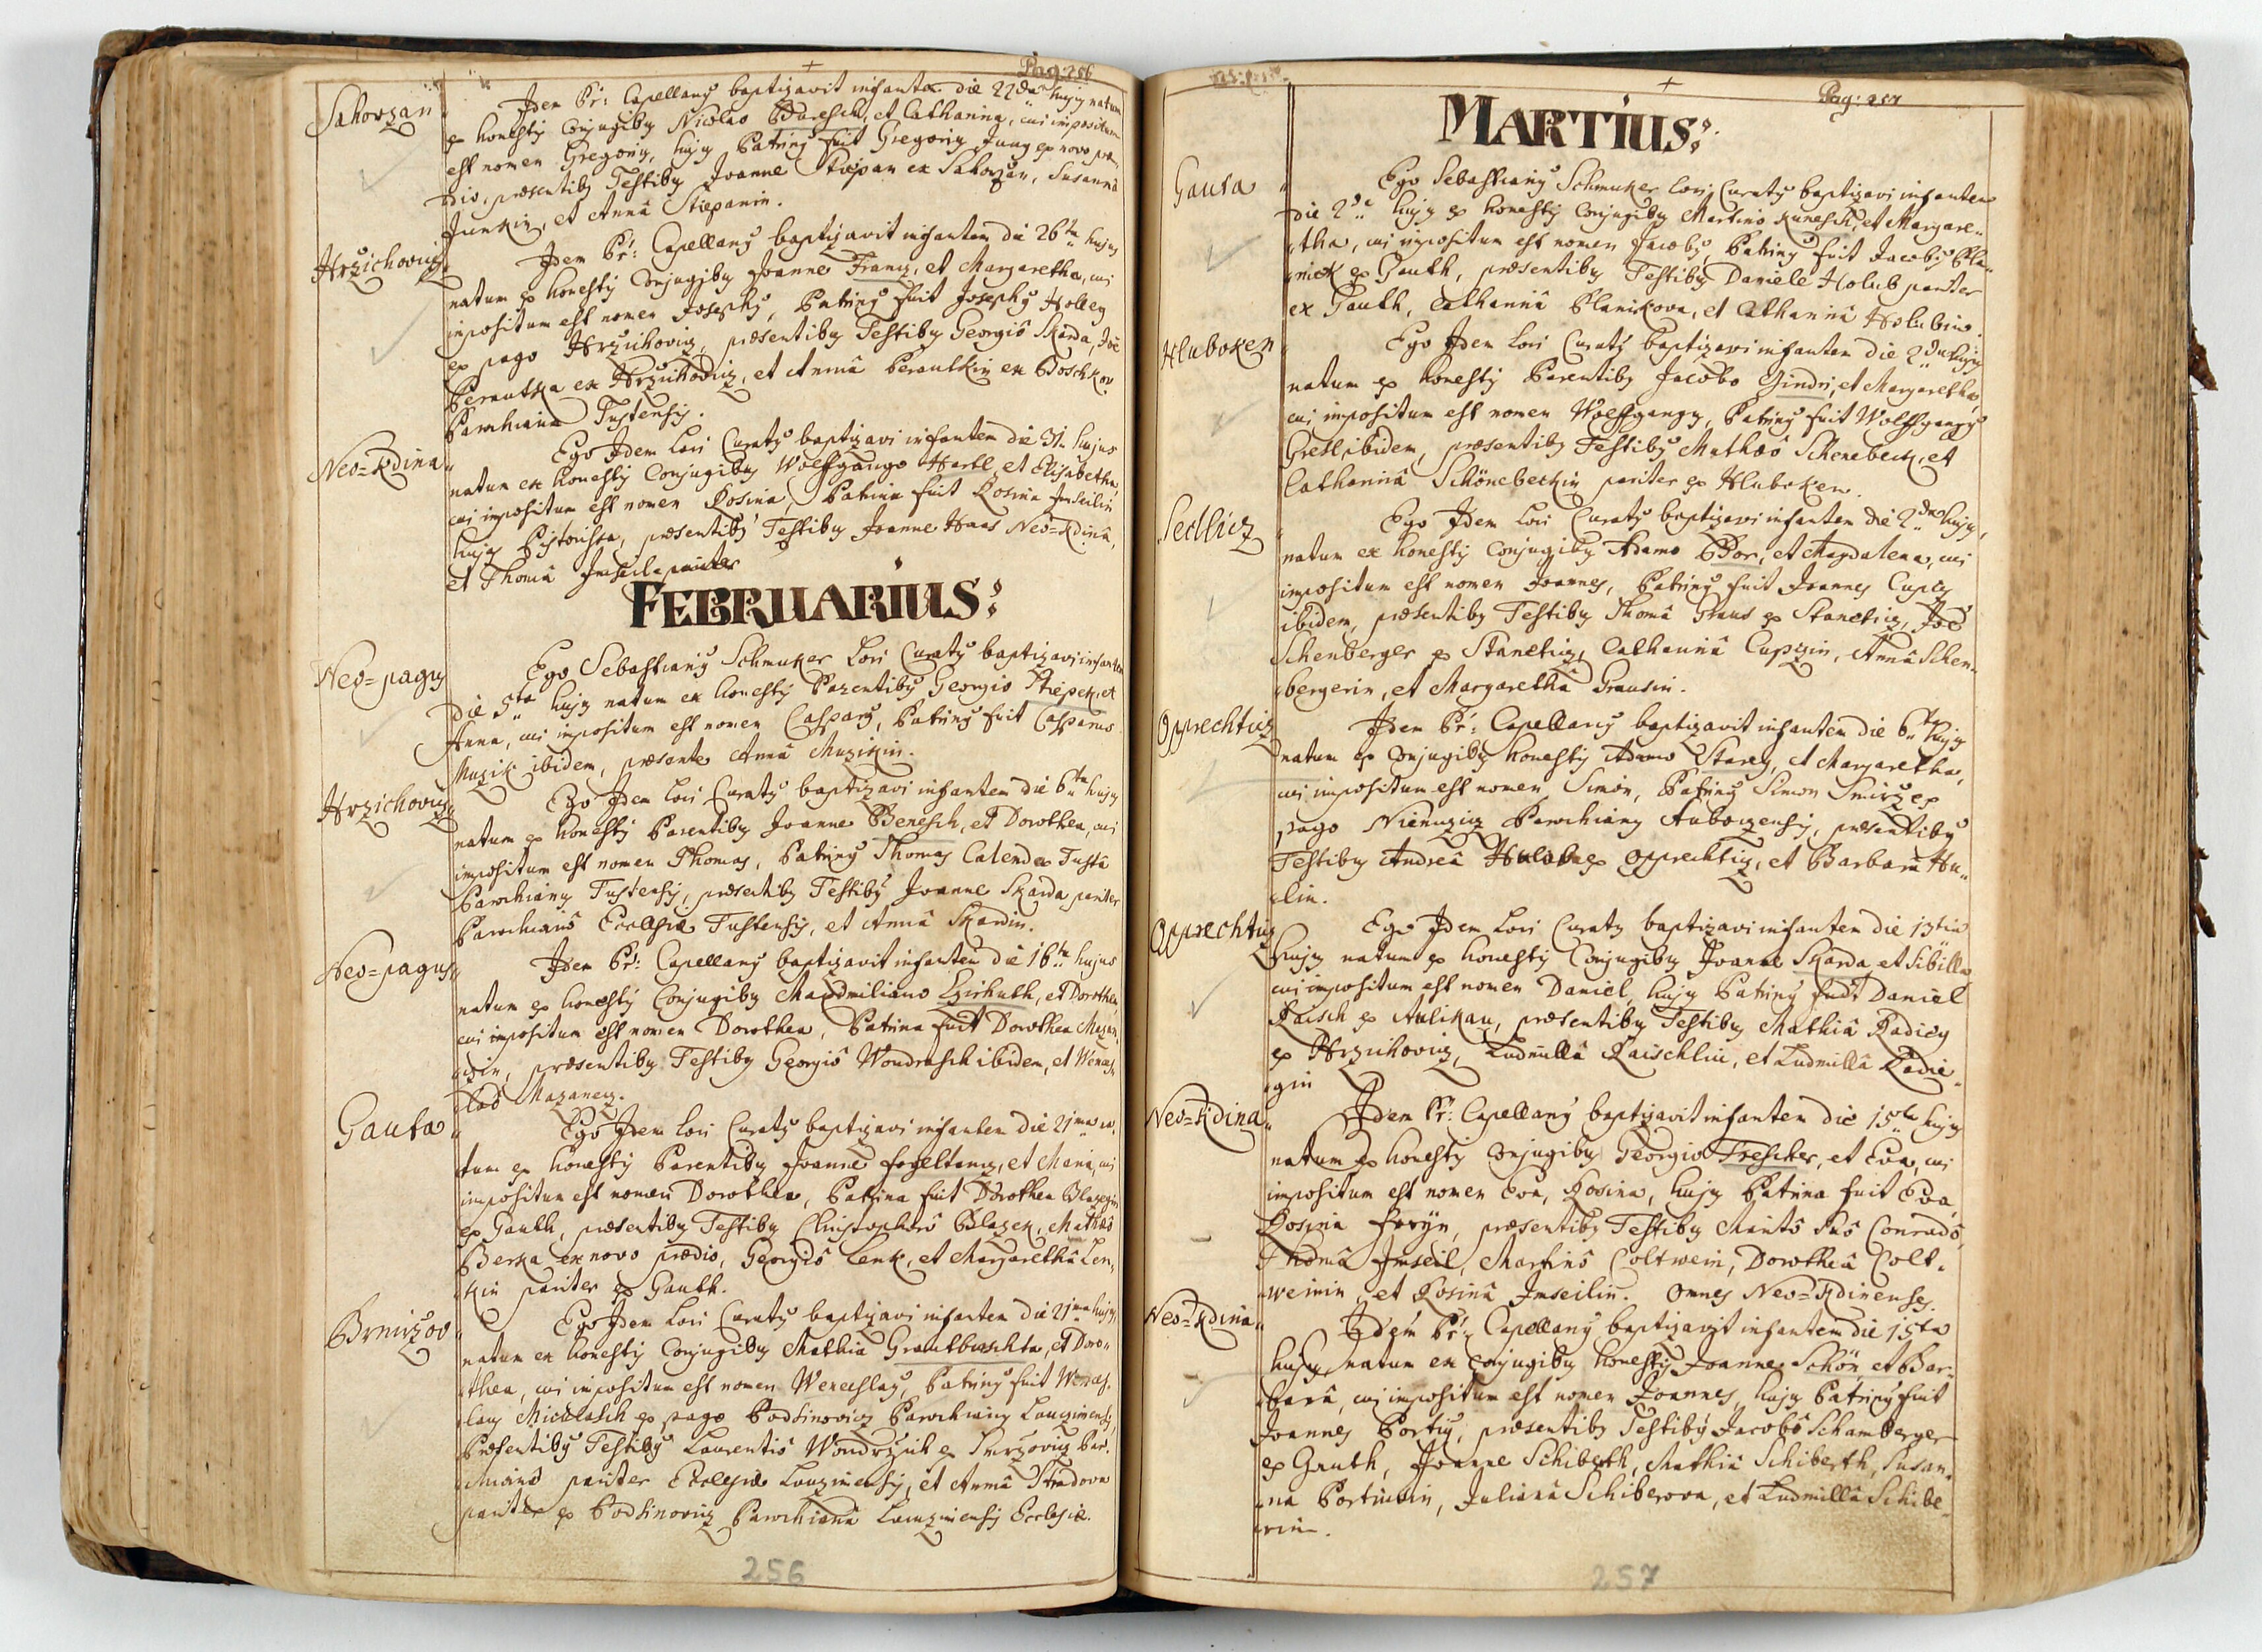 Pag: 256
Sahorzan
Idem Pr: Capellanus baptizavit infantem die 22da hujus natum
ex honestis Conjugibus Nicolao Bauresch, et Catharina, cui impositum
est nomen Gregorius, hujus Patrinus fuit Gregorius Jung ex novo præ„
dio, præsentibus Testibus Joanne Stiepan ex Sahorzan, Susanna
Junkin, et Annâ Stiepanin.
Hrzichowicz
Idem Pr: Capellanus baptizavit infantem die 26ta hujus
natum ex honestis Conjugibus Joanne Francz, et Margaretha, cui
impositum est nomen Josephus, Patrinus fuit Josephus Holley
ex pago Hrzichovicz, præsentibus Testibus Georgiô Skarda, Joē
Perautka ex Hrzichovicz, et Annâ Perautkin ex Boschkov
Parochiana Tustensis.
Neo=Kdina
Ego Idem Loci Curatus baptizavi infantem die 31. hujus
natum ex honestis Conjugibus Wolffgango Hartl, et Elisabetha
cui impositum est nomen Rosina, Patrina fuit Rosina Imseilin
hujus Pistorissa, præsentibus Testibus Joanne Haas Neo=Kdinâ,
et Thomâ Imseil pariter
FEBRUARIUS:
Neo=pagus
Ego Sebastianus Schmuker Loci Curatus baptizavi infantem
die 5ta hujus natum ex honestis Parentibus Georgio Stiepek, et
Anna, cui impositum est nomen Casparus, Patrinus fuit Casparus
Muzik ibidem, præsente Annâ Muzikin.
Hrzichovicz
Ego Idem Loci Curatus baptizavi infantem die 6ta hujus
natum ex honestis Parentibus Joanne Benesch, et Dorothea, cui
impositum est nomen Thomas, Patrinus Thomas Calend ex Tusta
Parochianus Tustensis, præsentibus Testibus Joanne Skarda pariter
Parochianô Ecclesiæ Tustensis, et Annâ Skardin.
Neo=pagus
Idem Pr: Capellanus baptizavit infantem die 16ta hujus
natum ex honestis Conjugibus Maxmiliano Czirhuth, et Dorothea,
cui impositum est nomen Dorothea, Patrina fuit Dorothea Mazan„
czin, præsentibus Testibus Georgiô Wondrasch ibidem, et Wences„
laô Mazanecz.
Gauta
Ego Idem Loci Curatus baptizavi infantem die 21ma na„
tum ex honestis Parentibus Joanne Fogltanz, et Maria, cui
impositum est nomen Dorothea, Patrina fuit Dorothea Blazegin
ex Gauth, præsentibus Testibus Christophorô Blazek, Mathæô
Berka ex novo prædio, Georgiô Lenk, et Margarethâ Len„
kin pariter ex Gauth.
Brnirzov
Ego Idem Loci Curatus baptizavi infantem die 21ma hujus,
natum ex honestis Conjugibus Mathia Grauthwschta, et Doro„
thea, cui impositum est nomen Wenceslaus, Patrinus fuit Wences„
laus Micolasch ex pago Podsinovicz Parochianus Lauczimensis,
Præsentibus Testibus Laurentiô Wondrzich ex Smrzovicz Par„
chianô pariter Ecclesiæ Lauzimensis, et Annâ Stradova
pariter ex Podsinovicz Parochianâ Lauzimensis Ecclesiæ.
256
Pag: 257
MARTIUS:
Gauta
Ego Sebastianus Schmuker Loci Curatus baptizavi infantem
die 2da hujus ex honestis Conjugibus Martino Kunesch, et Margare„
tha, cui impositum est nomen Jacobus, Patrinus fuit Jacobus Pla„
nick ex Gauth, præsentibus Testibus Daniele Holub pariter
ex Gauth, Catharinâ Planickova, et Catharinâ Holubin.
Hluboken
Ego Idem Loci Curatus baptizavi infantem die 2da hujus
natum ex honestis Parentibus Jacobo Gindri, et Margaretha,
cui impositum est nomen Wolffgangus, Patrinus fuit Wolffgangus
Gretl ibidem, præsentibus Testibus Mathæô Schenebeck, et
Catharinâ Schönebeckin pariter ex Hluboken.
Sedlicz
Ego Idem Loci Curatus baptizavi infantem die 2da hujus,
natum ex honestis Conjugibus Adamo Bor, et Magdalena, cui
impositum est nomen Joannes, Patrinus fuit Joannes Cupcz
ibidem, præsentibus Testibus Thomâ Graus ex Staneticz, Joē
Schenberger ex Staneticz, Catharinâ Cupczin, Annâ Schen„
bergerin, et Margarethâ Grausin.
Opprechticz
Idem Pr: Capellanus baptizavit infantem die 6ta hujus
natum ex Conjugibus honestis Adamo Starey, et Margaretha,
cui impositum est nomen Simon, Patrinus Simon Smirz ex
pago Niemczicz Parochianus Auborzensis, præsentibus
Testibus Andreâ Hula ex Opprechticz, et Barbarâ Hu„
lin.
Opprechticz
Ego Idem Loci Curatus baptizavi infantem die 13tia
hujus natum ex honestis Conjugibus Joanne Skarda et Sibilla
cui impositum est nomen Daniel, hujus Patrinus fuit Daniel
Raisch ex Aulikau, præsentibus Testibus Mathiâ Radiey
ex Hrzichovicz, Ludmillâ Raischlin, et Ludmillâ Radie„
gin
Neo=Kdina
Idem Pr: Capellanus baptizavit infantem die 15ta hujus
natum ex honestis Conjugibus Georgio Trescher, et Eva, cui
impositum est nomen Eva, Rosina, hujus Patrina fuit Eva,
Rosina Foryn, præsentibus Testibus Maritô suô Conradô,
Thomâ Imseil, Martinô Coltwein, Dorotheâ Colt„
weinin, et Rosinâ Imseilin. Omnes Neo=Kdinenses.
Neo=Kdina
Idem Pr: Capellanus baptizavit infantem die 15ta
hujus, natum ex Conjugibus honestis Joanne Schön, et Bar„
barâ, cui impositum est nomen Joannes, hujus Patrinus fuit
Joannes Portig, præsentibus Testibus Jacobô Schamberger
ex Gauth, Joanne Schiberth, Mathiâ Schiberth, Susan„
na Portin, Julianâ Schiberova, et Ludmillâ Schibe„
rin.
257